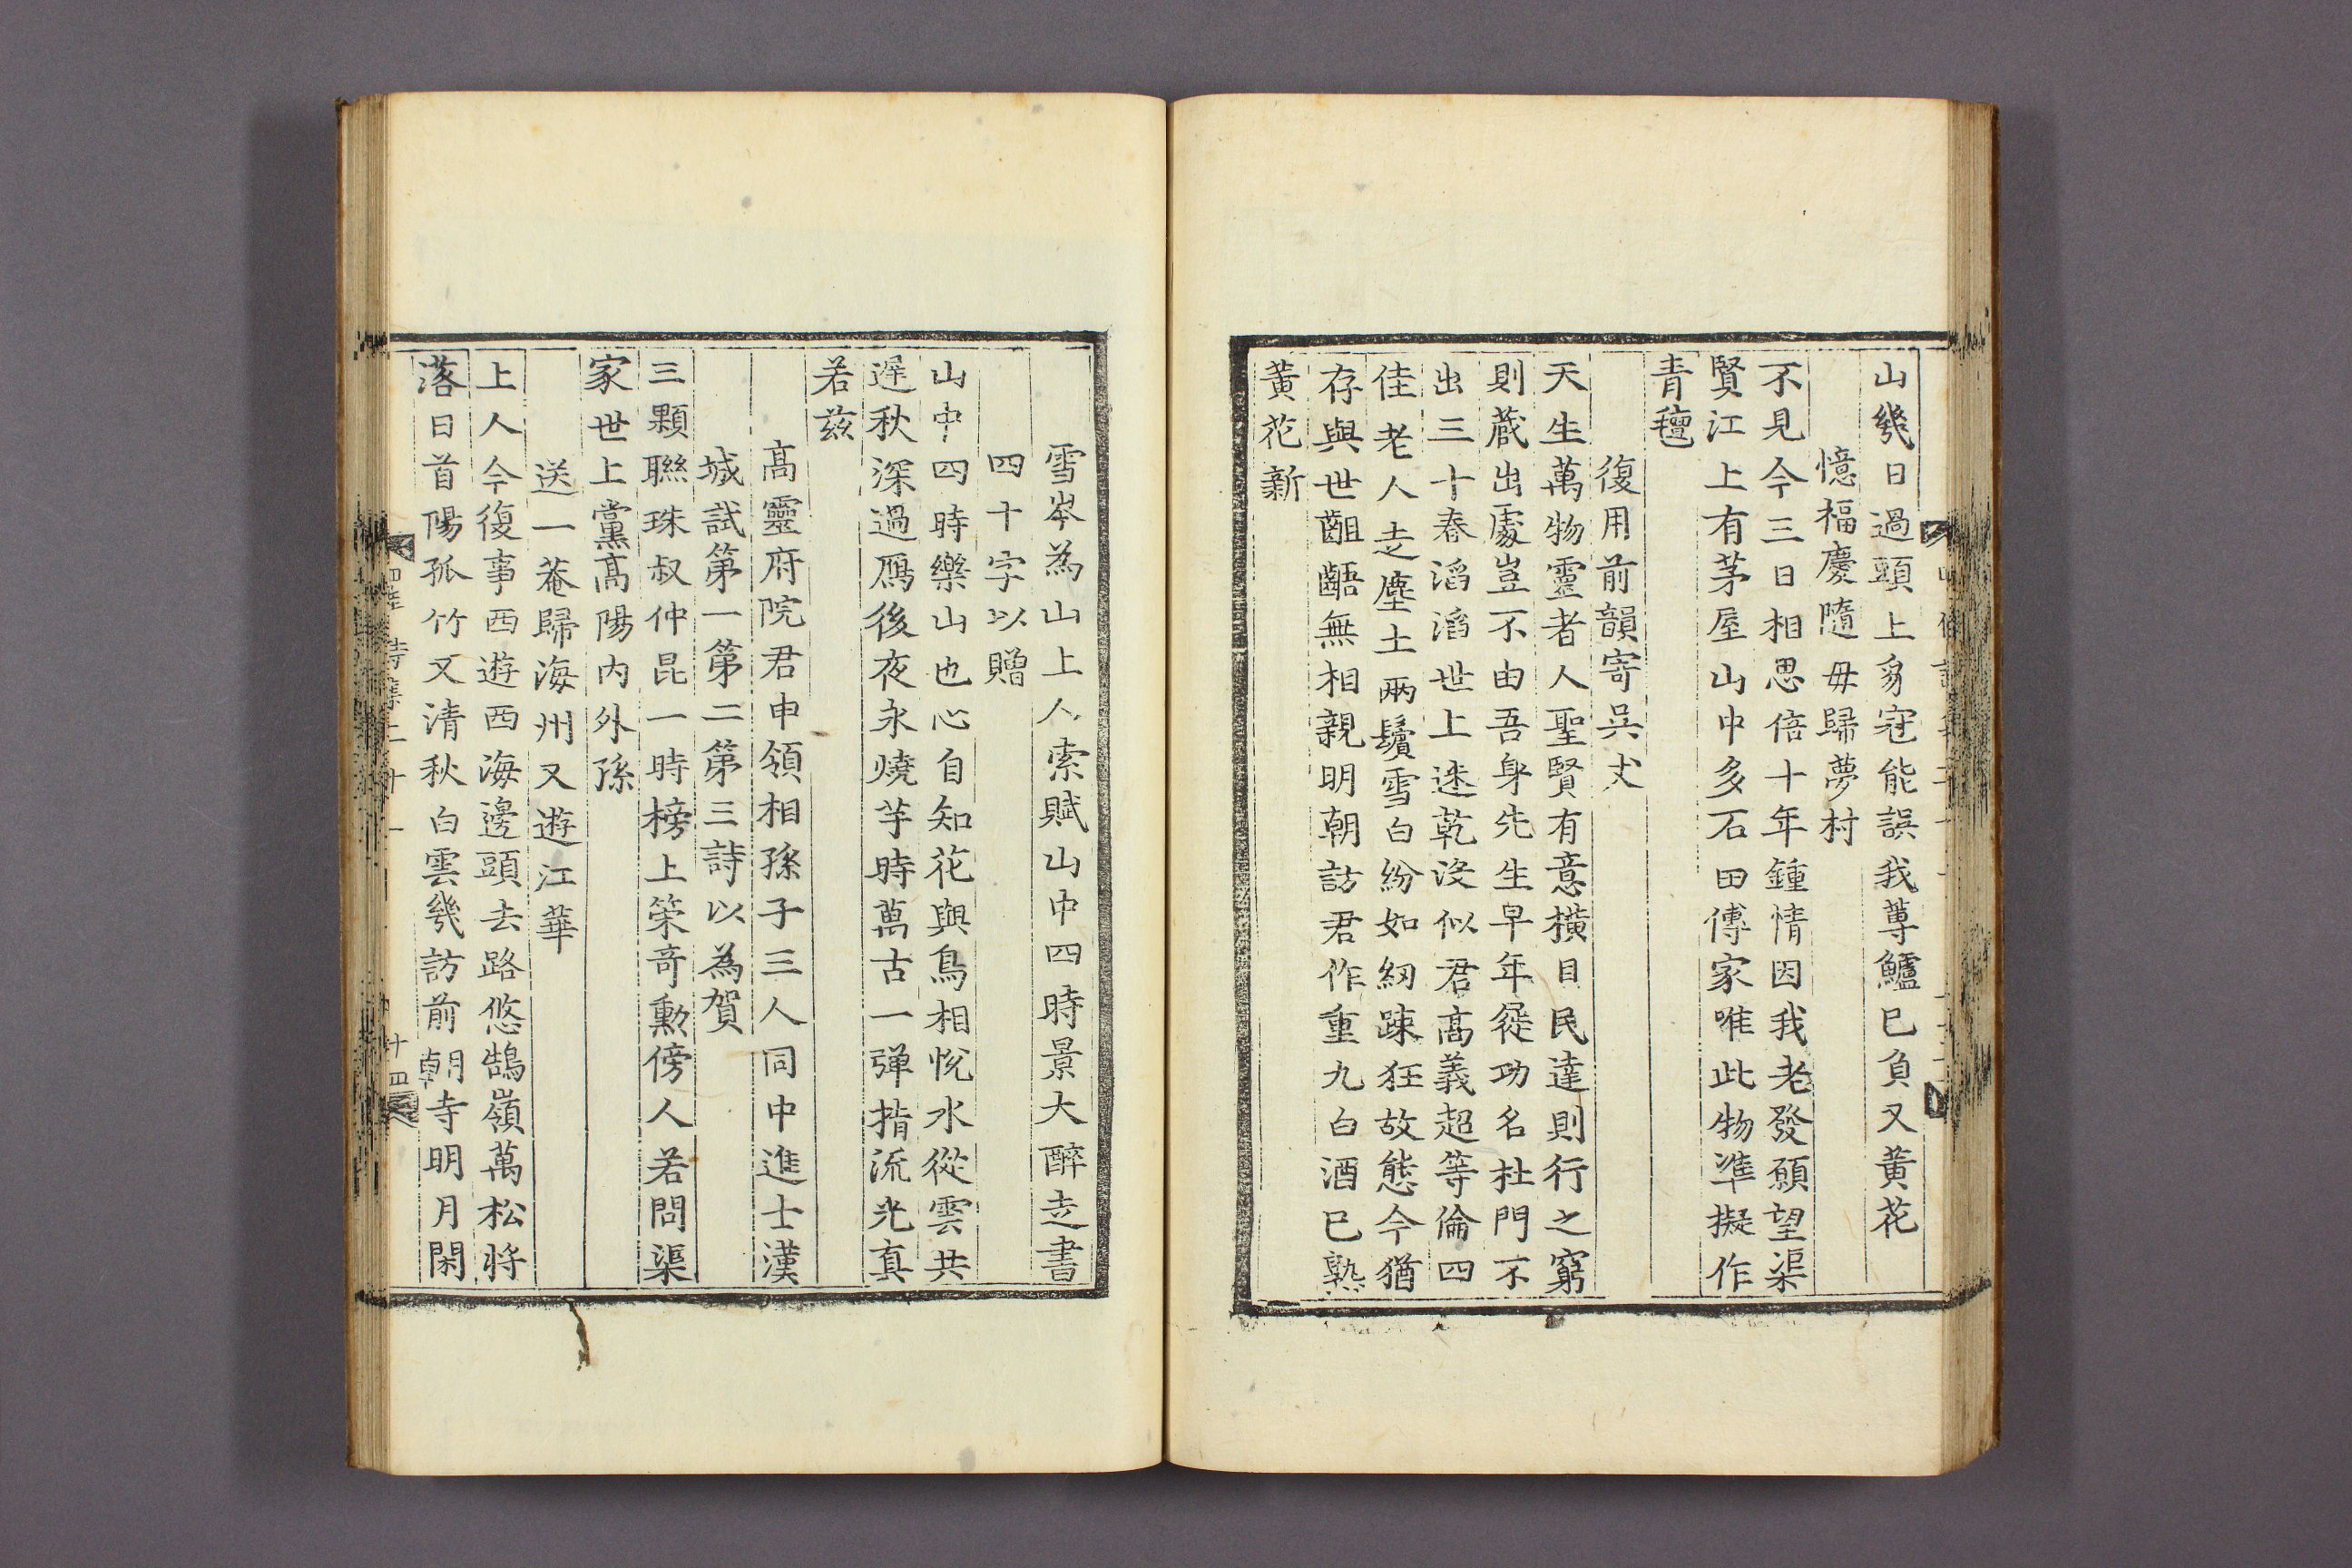 山幾日過頭上豸冠能誤我蓴鱸已負又黃花
憶福慶隨母歸夢村
不見今三日相思倍十年鍾情因我老發願望渠
賢江上有茅屋山中多石田傳家唯此物準擬作
青氊
復用前韻寄吳丈
天生萬物靈者人聖賢有意橫目民達則行之窮
則蔵出處豈不由吾身先生早年從功名杜門不
出三十春滔滔世上迷乾沒似君高義超等倫四
佳老人走塵土兩鬢雪白紛如紉踈狂故態今猶
存與世齟齬無相親明朝訪君作重九白酒已熟
黃花新
雪岑為山上人索賦山中四時景大醉走書
四十字以贈
山中四時樂山也心自知花與鳥相悅水從雲共
遲秋深過鴈後夜永燒芋時萬古一彈指流光真
若兹
高靈府院君申領相孫子三人同中進士漢
城試第一第二第三詩以為賀
三顆聯珠叔仲昆一時榜上策奇勳傍人若問渠
家世上黨高陽內外孫
送一菴歸海州又遊江華
上人今復事西遊西海邊頭去路悠鵠嶺萬松將
落日首陽孤竹又清秋白雲幾訪前朝寺明月閑
十四